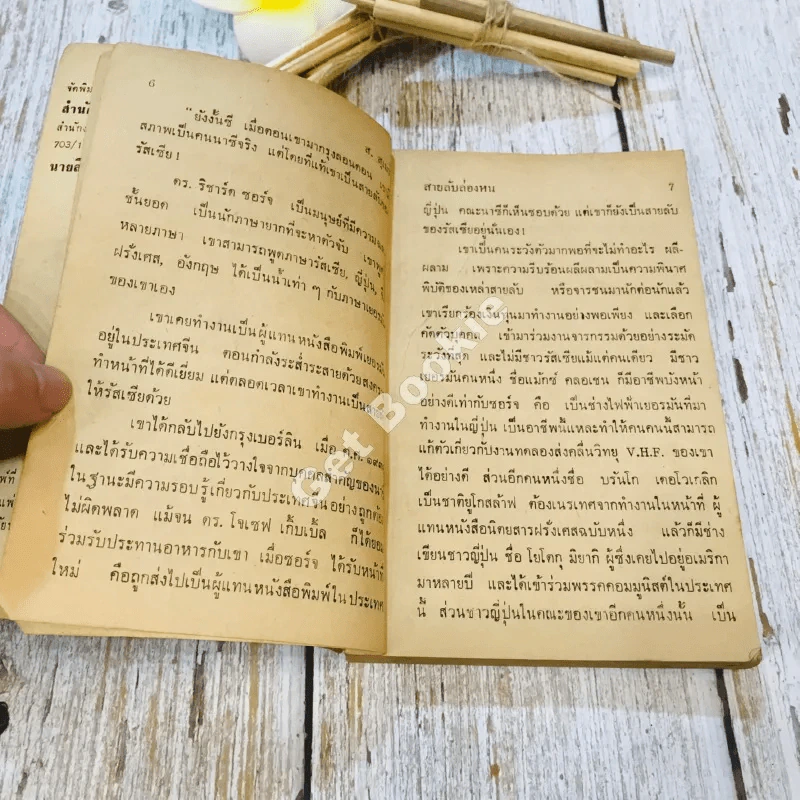 จัดพิม
สำนัก
สำนักง
703/1
นายส
6
ส.
"ยังงั้นซี เมื่อตอนเขามากรุงลอนดอน
สภาพเป็นคนนาซีจริง แต่โดยที่แท้เขาเป็นสายลับของ
รัสเซีย !
ดร. ริชาร์ด ซอร์จ เป็นมนุษย์ที่มีความ
ชั้นยอด เป็นนักภาษายากที่จะหาตัวจับ เขาพูด
หลายภาษา เขาสามารถพูดภาษารัสเซีย, ญี่ปุ่น,
ฝรั่งเศส, อังกฤษ ได้เป็นน้ำเท่า ๆ กับภาษาเยอรมัน
ของเขาเอง
เขาเคยทำงานเป็นผู้แทนหนังสือพิมพ์เยอรมัน
อยู่ในประเทศจีน ตอนกำลังระส่ำระสายด้วยสงคราม
ทำหน้าที่ได้ดีเยี่ยม แต่ตลอดเวลาเขาทำงานเป็น
ให้รัสเซียด้วย
เขาได้กลับไปยังกรุงเบอร์ลิน เมื่อ ค.ศ.
และได้รับความเชื่อถือไว้วางใจจากบุคคลสำคัญของนาซี
ในฐานะมีความรอบรู้เกี่ยวกับประเทศจีนอย่างถูกต้อง
ไม่ผิดพลาด แม้จน ดร. โจเซฟ เก็บเบิ้ล ก็ได้ยอม
ร่วมรับประทานอาหารกับเขา เมื่อซอร์จ ได้รับหน้าที่
ใหม่ คือถูกส่งไปเป็นผู้แทนหนังสือพิมพ์ในประเทศ
สายลับล่องหน 7
ญี่ปุ่น คณะนาซีก็เห็นชอบด้วย แต่เขาก็ยังเป็นสายลับ
ของรัสเซียอยู่นั่นเอง !
เขาเป็นคนระวังตัวมากพอที่จะไม่ทำอะไร ผลี-
ผลาม เพราะความรีบร้อนผลีผลามเป็นความพินาศ
พิบัติของเหล่าสายลับ หรือจารชนมานักต่อนักแล้ว
เขาเรียกร้องเงินทุนมาทำงานอย่างพอเพียง และเลือก
คัดตัวบุคคล เข้ามาร่วมงานจารกรรมด้วยอย่างระมัด
ระวังที่สุด และไม่มีชาวรัสเซียแม้แต่คนเดียว มีชาว
เยอรมันคนหนึ่ง ชื่อแม๊กซ์ คลอเชน ก็มีอาชีพบังหน้า
อย่างดีเท่ากับซอร์จ คือ เป็นช่างไฟฟ้าเยอรมันที่มา
ทำงานในญี่ปุ่น เป็นอาชีพนี้แหละทำให้คนคนนี้สามารถ
แก้ตัวเกี่ยวกับงานทดลองส่งคลื่นวิทยุ V.H.F. ของเขา
ได้อย่างดี ส่วนอีกคนหนึ่งชื่อ บรันโก เดอโวเกลิก
เป็นชาติยูโกสล้าฟ ต้องเนรเทศจากทำงานในหน้าที่ ผู้
แทนหนังสือนิตยสารฝรั่งเศสฉบับหนึ่ง แล้วก็มีช่าง
เขียนชาวญี่ปุ่น ชื่อ โยโตกุ มิยากิ ผู้ซึ่งเคยไปอยู่อเมริกา
มาหลายปี และได้เข้าร่วมพรรคคอมมูนิสต์ในประเทศ
นี้ ส่วนชาวญี่ปุ่นในคณะของเขาอีกคนหนึ่งนั้น เป็น
Get Bookie